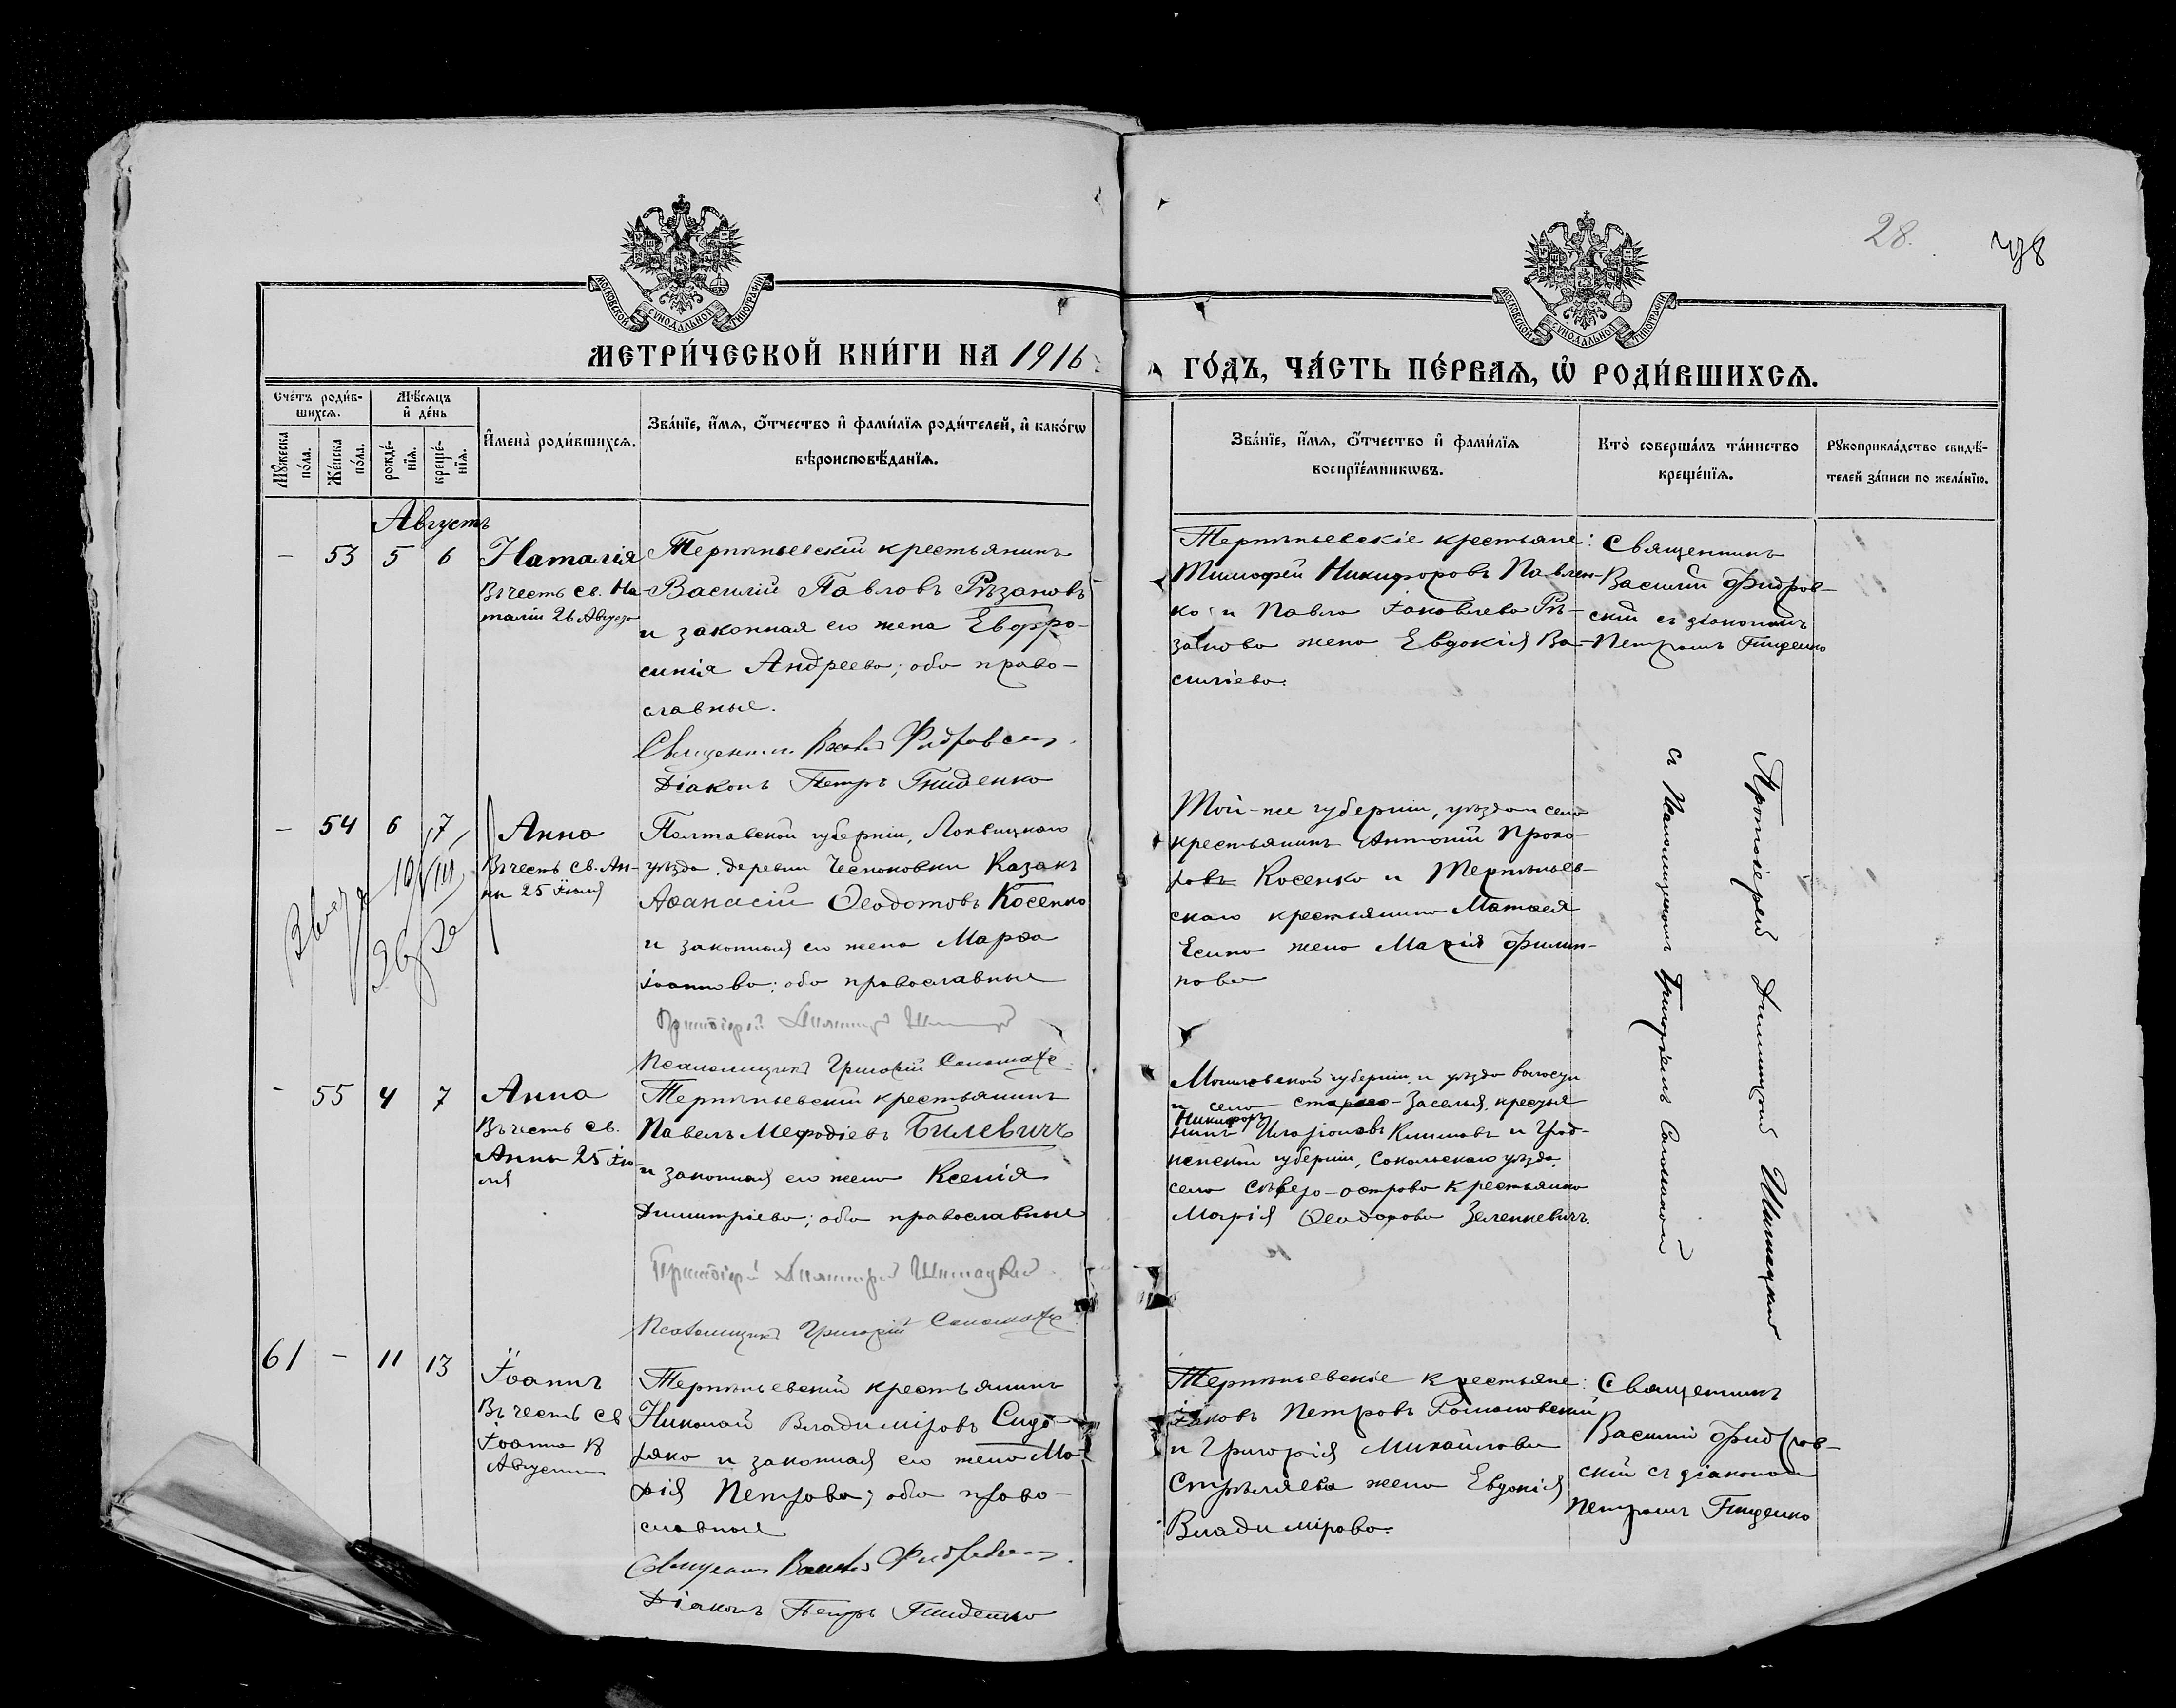 28.
МОСКОВСКОЙ СѴНОДАЛЬНОЙ ТИПОГРАФІИ
МОСКОВСКОЙ СѴНОДАЛЬНОЙ ТИПОГРАФІИ
МЕТРИ́ЧЕСКОЙ КНИ́ГИ НА 1916
ГО́ДЪ, ЧА́СТЬ ПЕ́РВАѦ, Ѽ РОДИ́ВШИХСѦ.
Сче́тъ роди́в-
шихсѧ.
Мꙋ́жеска
по́ла.
Же́нска
по́ла.
Мѣ́сѧцъ
и҆ де́нь
рожде́-
нїѧ.
креще́-
нїѧ.
И҆мена̀ роди́вшихсѧ.
Зва́нїе, и҆́мѧ, ѻ҆́тчество и҆ фами́лїѧ роди́телей, и҆ како́гѡ
вѣроисповѣ́данїѧ.
Зва́нїе, и҆́мѧ, ѻ҆́тчество и҆ фами́лїѧ
воспрїе́мникѡвъ.
Кто̀ соверша́лъ та́инство
креще́нїѧ.
Рꙋкоприкла́дство свидѣ́-
телей за́писи по жела́нїю.
Августъ
- 53 5 6
Наталія
Въ честь св. На-
таліи 26 Августа
Терпѣньевскій крестьянинъ
Василій Павловъ Рѣзановъ
и законная его жена Евфро-
синія Андреева; оба право-
славные.
Священникъ Василій Фидровскій
Діаконъ Петръ Гниденко
Терпѣньевскіе крестьяне:
Тимофей Никифоровъ Павлен-
ко и Павла Іаковлева Рѣ-
занова жена Евдокія Ва-
силіева.
Священникъ
Василій Фидров-
скій съ діакономъ
Петромъ Гниденко
- 54 6 7
Анна
Въ честь св. Ан-
ны 25 Іюля
10/VIII
Полтавской губерніи, Лохвицкаго
уѣзда, деревни Чесноковки Казакъ
Аѳанасій Ѳеодотовъ Косенко
и законная его жена Марѳа
Іоаннова; оба православные
Протоіерей Димитрій
Псаломщикъ Григорій Соломаха
Той-же губерніи, уѣзда и села
крестьянинъ Антоній Прохо-
ровъ Косенко и Терпѣньев-
скаго крестьянина Матѳея
Есипа жена Марія Филип-
пова
Протоіерей Димитрій Шишацкій
съ Псаломщикомъ Григоріемъ Соломахой
- 55 4 7
Анна
Въ честь св.
Анны 25 Ію-
ля
Терпѣньевскій крестьянинъ
Павелъ Меѳодіевъ Билевичъ
и законная его жена Ксенія
Димитріева; оба православные
Протоіерей Димитрій Шишацкій
Псаломщикъ Григорій Соломаха
Могилевской губерніи и уѣзда волости
и села Стараго-Заселья, крестья
нинъ Никифоръ Иларіоновъ Климовъ и Грод-
ненской губерніи, Сокольскаго уѣзда,
села Сѣверо-острова крестьянка
Марія Ѳеодорова Зеленкевичъ.
61 - 11 13
Іоаннъ
Въ честь св
Іоанна
Августа
Терпѣньевскій крестьянинъ
Николай Владиміровъ Сидо-
ряко и законная его жена Ма-
рія Петрова; оба право-
славные
Священникъ Василій Фидровскій
Діаконъ Петръ Гниденко
Терпѣньевскіе крестьяне:
Іаковъ Петровъ Романовскій
и Григорія Михайлова
Стрѣляева жена Евдокія
Владимірова.
Священникъ
Василій Фидров-
скій съ діакономъ
Петромъ Гниденко